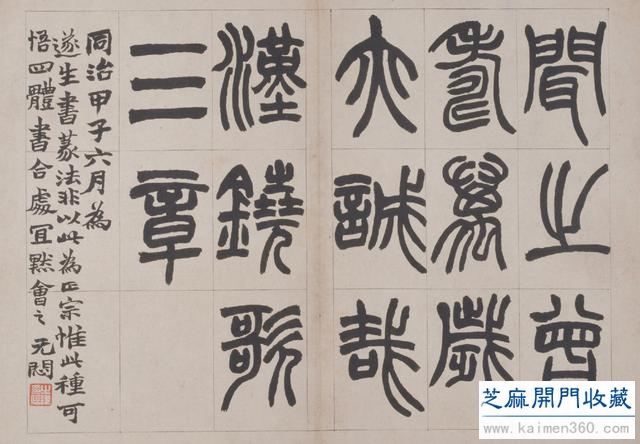 聞之曾
壽萬歲
亦誠哉
漢鐃歌
三章
同治甲子六月為
遂生書篆法非以此為正宗惟此種可
悟四體書合處宜默會之 无悶
芝麻開門收藏
www.kaimen360.com